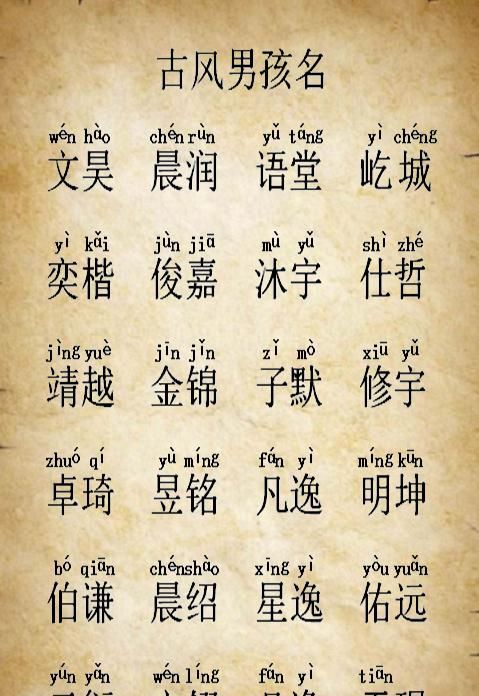 古风男孩名
wén hào chén rùn yǔ táng yì chéng
文昊 晨润 语堂 屹城
yì kǎi jùn jiā mù yǔ shì zhé
奕楷 俊嘉 沐宇 仕哲
jìng yuè jīn jǐn zǐ mò xiū yǔ
靖越 金锦 子默 修宇
zhuó qí yù míng fán yì míng kūn
卓琦 昱铭 凡逸 明坤
bó qiān chén shào xīng yì yòu yuǎn
伯谦 晨绍 星逸 佑远
yún yǎn wén líng fán yì tiān